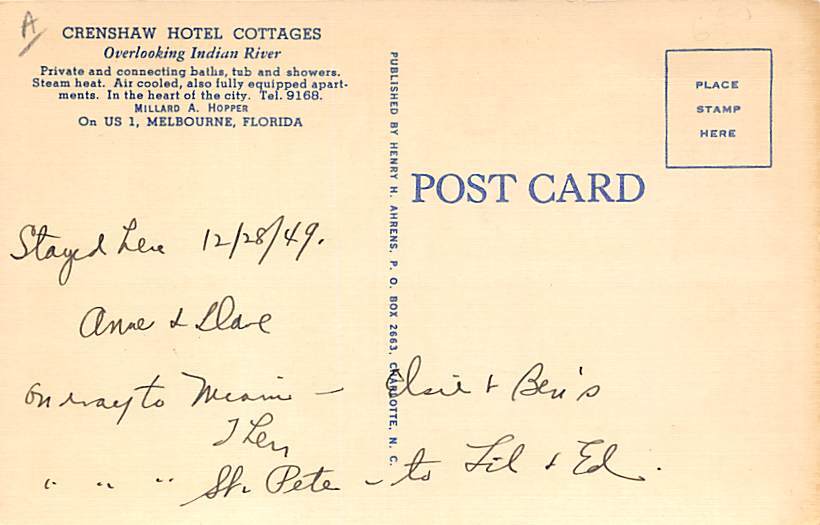 A
CRENSHAW HOTEL COTTAGES
Overlooking Indian River
Private and connecting baths, tub and showers.
Steam heat. Air cooled, also fully equipped apart-
ments. In the heart of the city. Tel. 9168.
MILLARD A. HOPPER
On US 1, MELBOURNE, FLORIDA
PUBLISHED BY HENRY H. AHRENS, P. O. BOX 2663, CHARLOTTE, N. C.
PLACE
STAMP
HERE
POST CARD
Stayed here 12/28/49.
Anne & Dave
on way to Miami - Elsie & Ben's
Then
" " " St. Pete - to Lil & Ed.